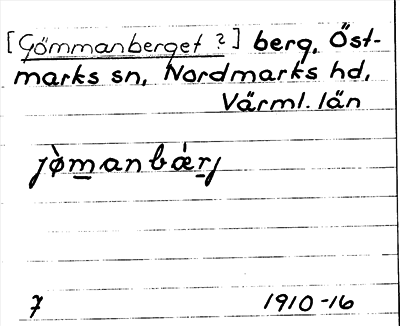 [Gömmanberget ?] berg, Öst-
marks sn, Nordmarks hd,
Värml. län
jòmanbǽrj
7 1910-16